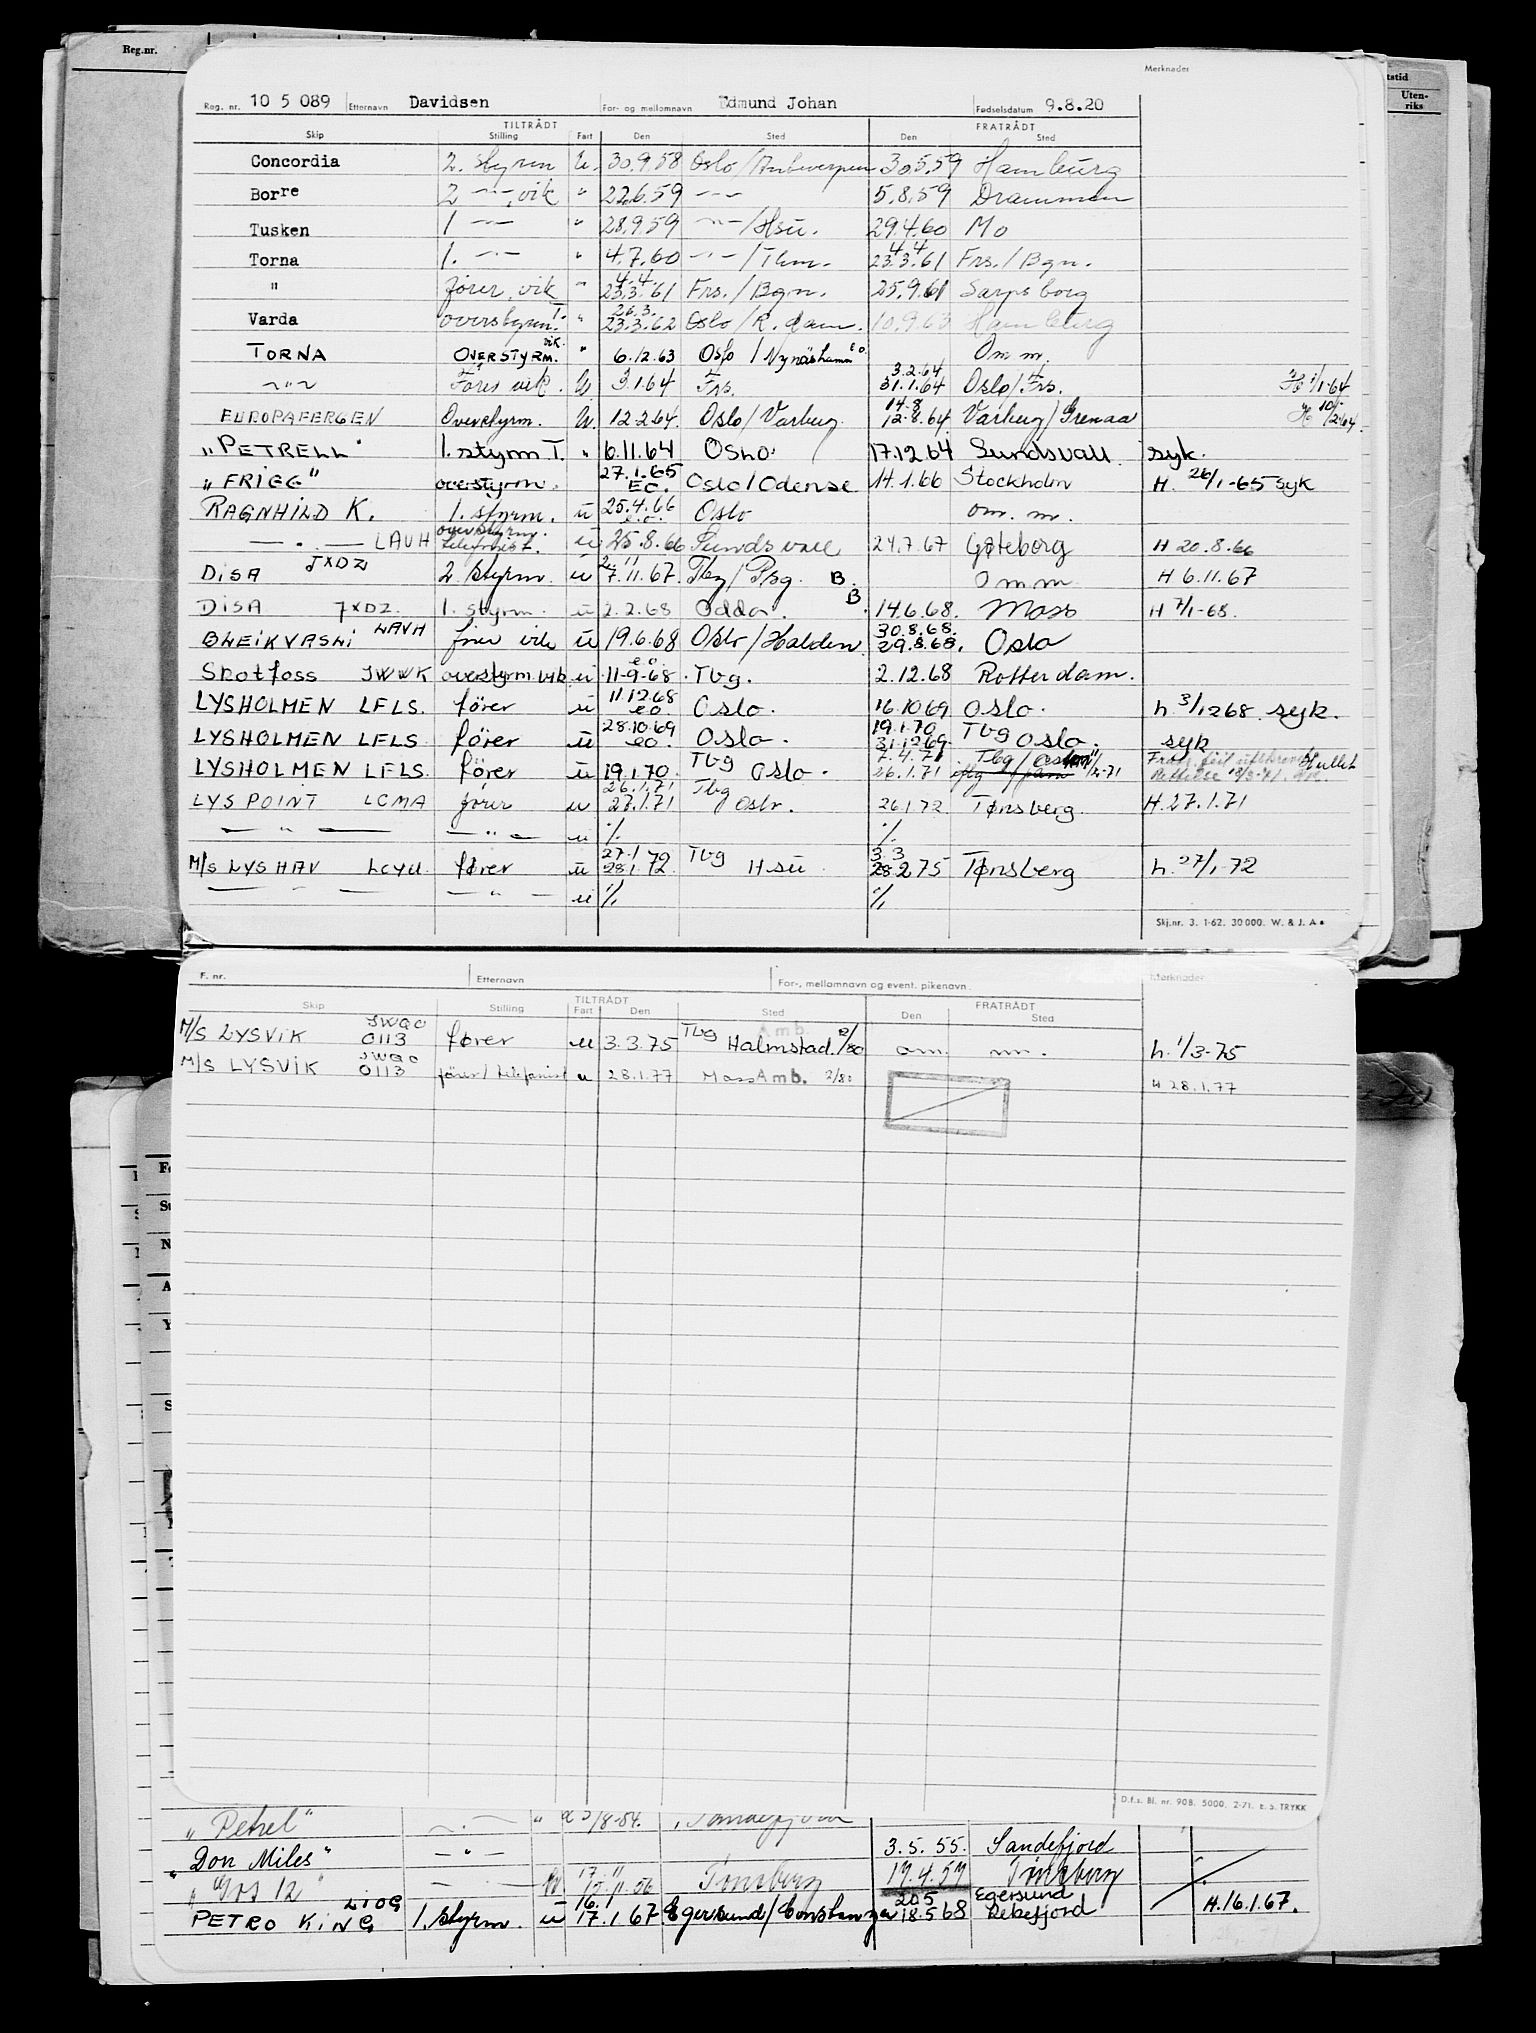 Reg.nr.
Merknader
Uten-
riks
Reg. nr. 10 5 089 Etternavn Davidsen For- og mellomnavn Edmund Johan Fødselsdatum 9.8.20
TILTRÅDT FRATRÅDT
Skip Stilling Fart Den Sted Den Sted
Concordia 2. styrm U. 30.9.58 Oslo/Antwerpen 30.5.59 Hamburg
Borre 2 -"- vik " 22.6.59 -"- 5.8.59 Drammen
Tusken 1 -"- " 28.9.59 -"-/Hsu. 29.4.60 Mo
Torna 1. -"- " 4.7.60 -"-/ 4.4 23.3.61 Frs./Bgn.
" fører vik " 4.4. 23.3.61 Frs./Bgn. 25.9.61 Sarpsborg
Varda overstyrm. T. " 26.3. 23.3.62 Oslo/R.dam. 10.9.63 Hamburg
TORNA OVERSTYRM. vik. " 6.12.63 Oslo/Nynäshamn e.o. Om m.
-"- Fører vik. U 3.1.64 Frs. 3.2.64 31.1.64 Oslo/Frs. H 2/1-64
EUROPAFERGEN Overstyrm. U. 12.2.64. Oslo/Varberg. 14.8. 12.8.64. Varberg/Grenaa H 10/2-64.
"PETRELL" 1. styrm T. " 6.11.64 OSLO. 17.12.64 Sundsvall. syk.
"FRIGG" overstyrm. 27.1.65 E.O. Oslo/Odense 14.1.66 Stockholm H. 26/1-65 syk
RAGNHILD K. 1. styrm. u 25.4.66 e.o. Oslo om. m.
— " — LAVH overstyrm. telefonist. u 25.8.66 Sundsvall 24.7.67 Gøteborg H 20.8.66
DISA JXDZ 2 styrm. u 7.11.67. Tbg/Psg. B. Om m H 6.11.67
DISA JXDZ. 1. styrm. u 2.2.68 Odda. B. 14.6.68. Moss H 7/1-68.
BLEIKVASLI LAVH fører vik u 19.6.68 Oslo/Halden 30.8.68. 29.8.68. Oslo
Skotfoss JWWK overstyrm. vik. u e.o. 11-9-68. Tbg. 2.12.68 Rotterdam.
LYSHOLMEN LFLS. fører u 11.12.68 eo. Oslo. 16.10.69 Oslo. h. 3/12 68 syk.
LYSHOLMEN LFLS fører u 28.10.69 eo. Oslo. 19.1.70 31.12.69. Tbg Oslo. syk
LYSHOLMEN LFLS. fører u 19.1.70. Tbg Oslo. 7.4.71 26.1.71
LYS POINT LCMA fører u 26.1.71 27.1.71 Tbg Oslo. 26.1.72 Tønsberg H. 27.1.71
— " — — " — u % %
M/S LYSHAV LCYU fører u 27.1 28.1.72. Tbg Hsu 3.3 28.2.75 Tønsberg h. 27/1-72
— " — — " — u % %
Skj.nr. 3. 1-62. 30000. W. & J. A.
F. nr. Etternavn For-, mellomnavn og event. pikenavn. Merknader
TILTRÅDT FRATRÅDT
Skip Stilling Fart Den Sted Den Sted
M/S LYSVIK JWQO 0113 fører u 3.3.75 Tbg Halmstad. Amb. 2/80 om. m. h. 1/3-75
M/S LYSVIK JWQO 0113 fører/telefonist u 28.1.77 Moss Amb. 2/80 H 28.1.77
D.f.s. Bl. nr. 90B. 5000. 2-71. E. S. TRYKK
"Petrel" -"- " /8-54. Sandefjord
"Don Miles" -"- 3.5.55. Sandefjord
"Gos 12" 17.11 Tønsberg 17.4.57 Tønsberg
PETRO KING LIOG 1. styrm. u 16.1 17.1.67 Egersund/Constanza 20.5 18.5.68 Egersund Rekefjord H. 16.1.67.